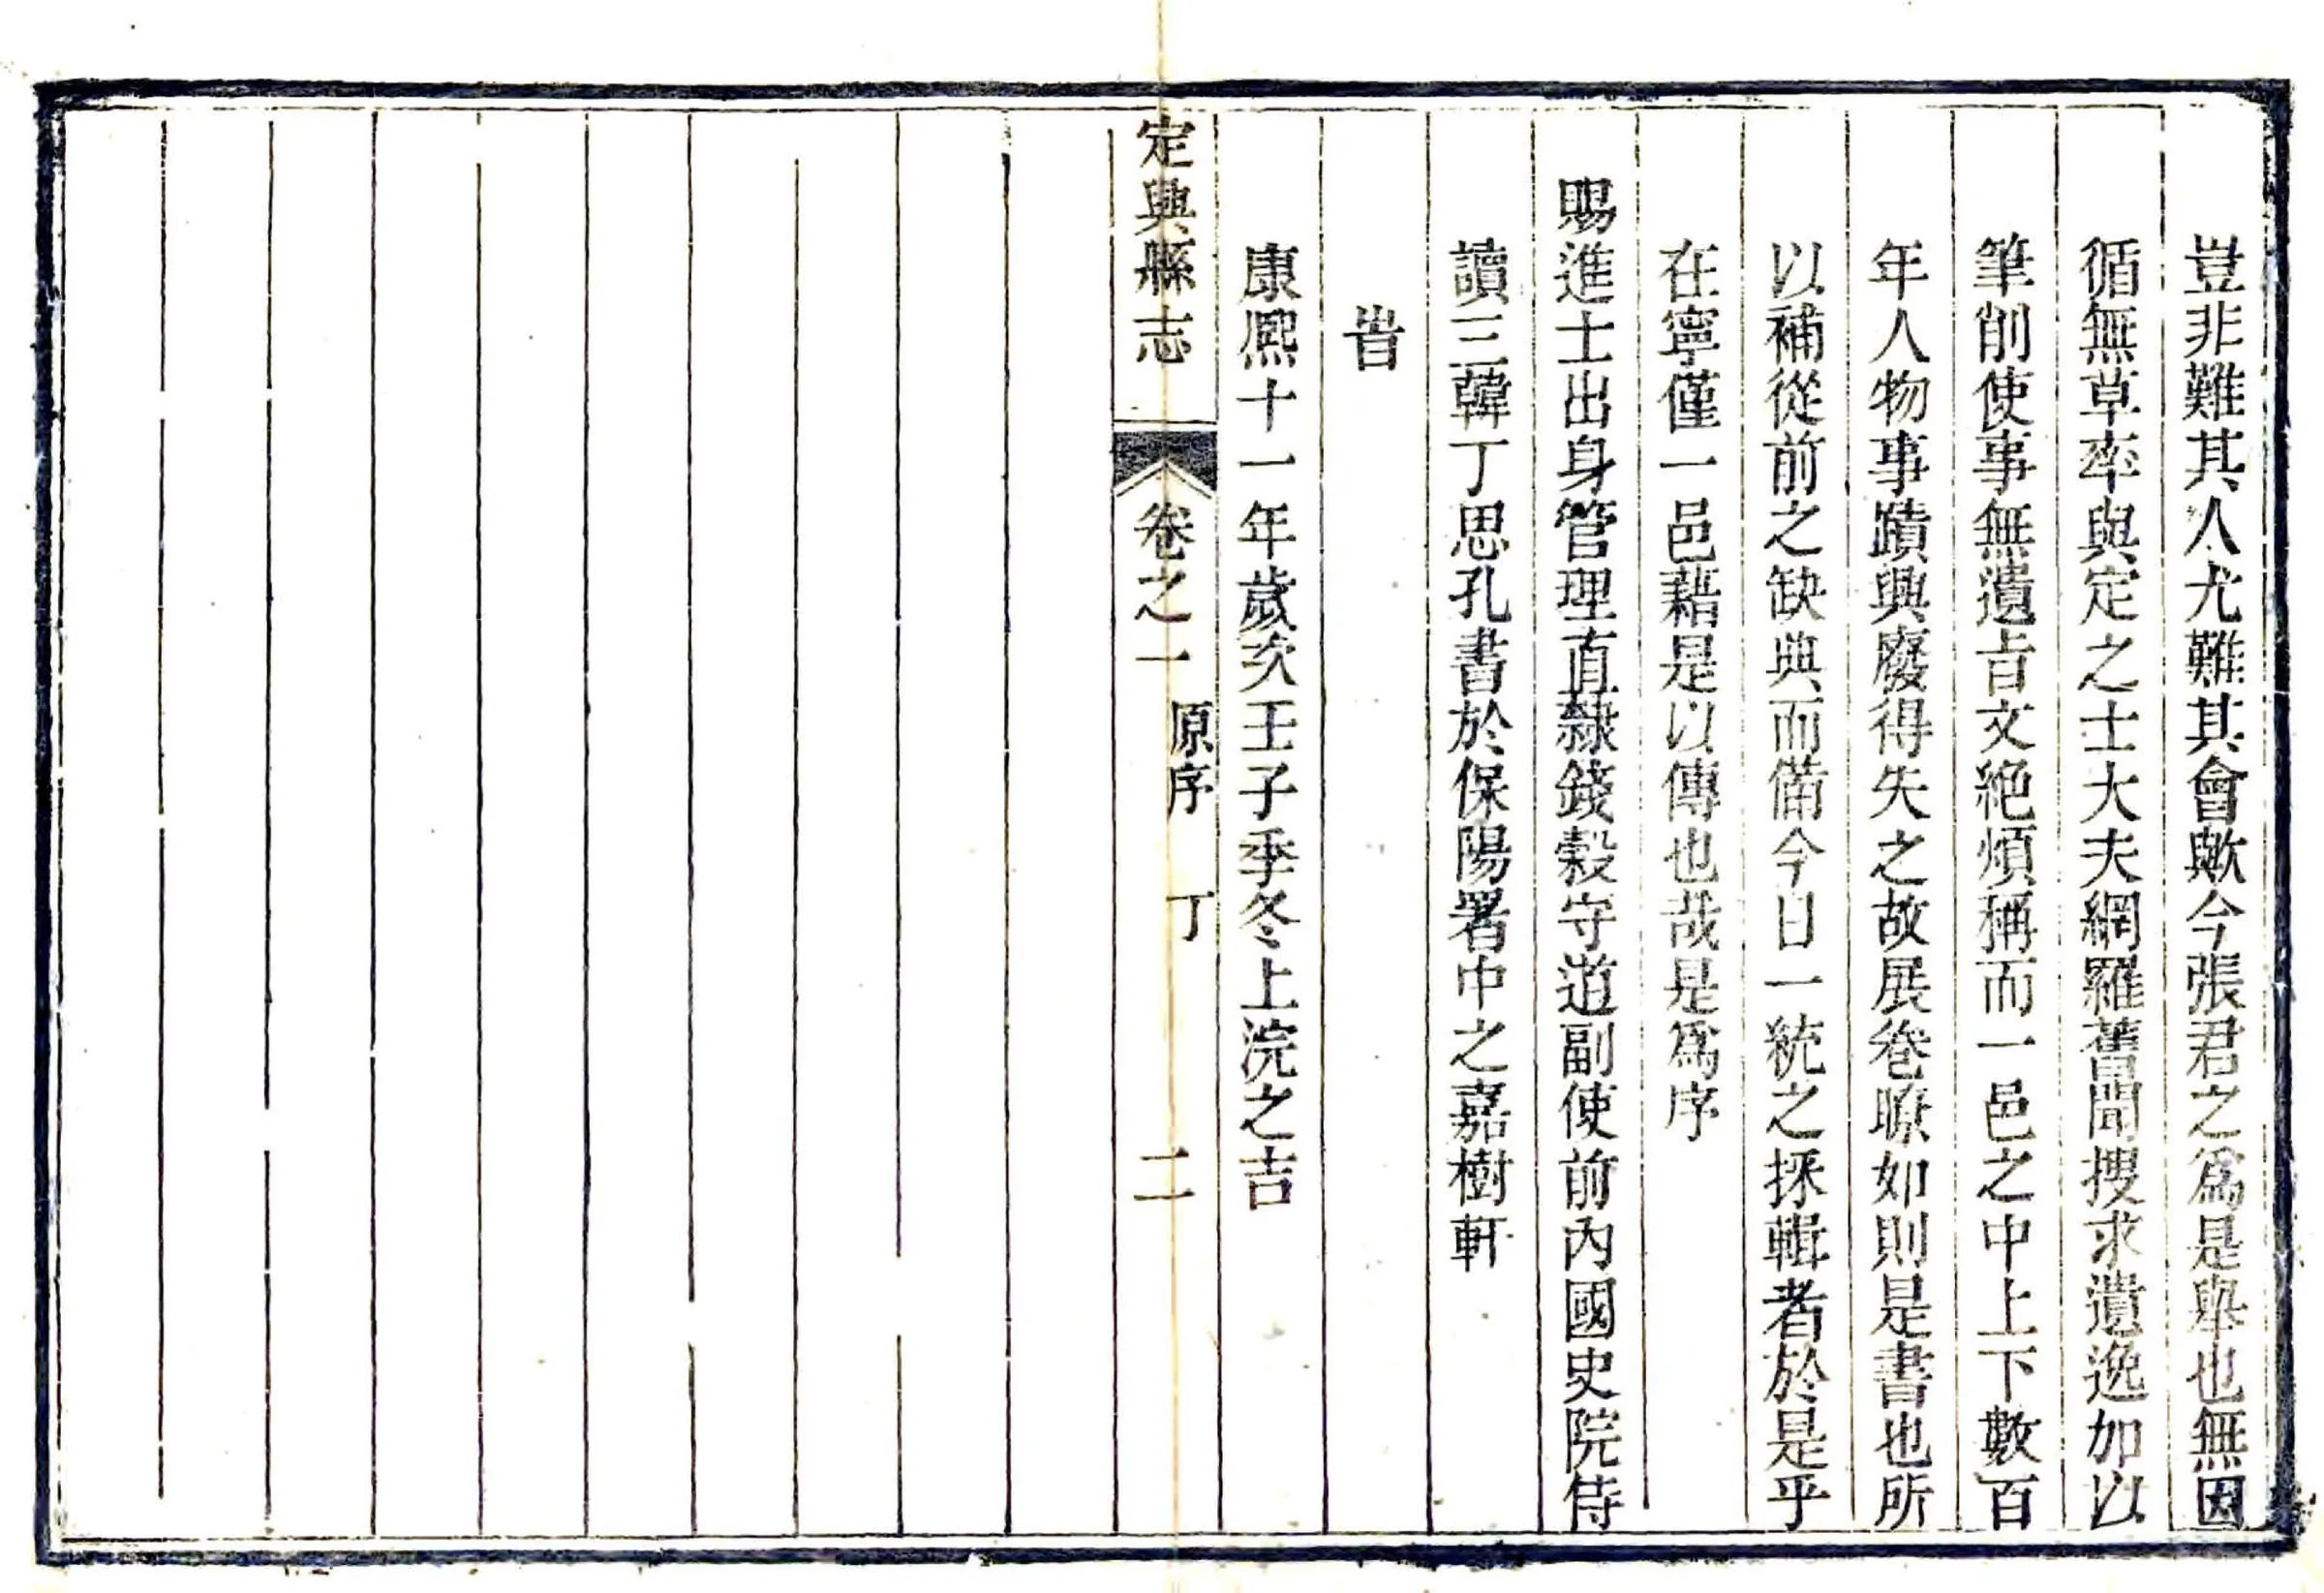 豈非難其人尤難其會歟今張君之爲是舉也無因
循無草率與定之士大夫網羅舊聞搜求遺逸加以
筆削使事無遺旨文絶煩稱而一邑之中上下數百
年人物事蹟興廢得失之故展卷瞭如則是書也所
以補從前之缺典而備今日一統之採輯者於是乎
在寧僅一邑藉是以傳也哉是爲序
賜進士出身管理直隸錢穀守道副使前內國史院侍
讀三韓丁思孔書於保陽署中之嘉樹軒
旹
康熙十一年歲次壬子季冬上浣之吉
定興縣志 卷之一 原序 丁 二